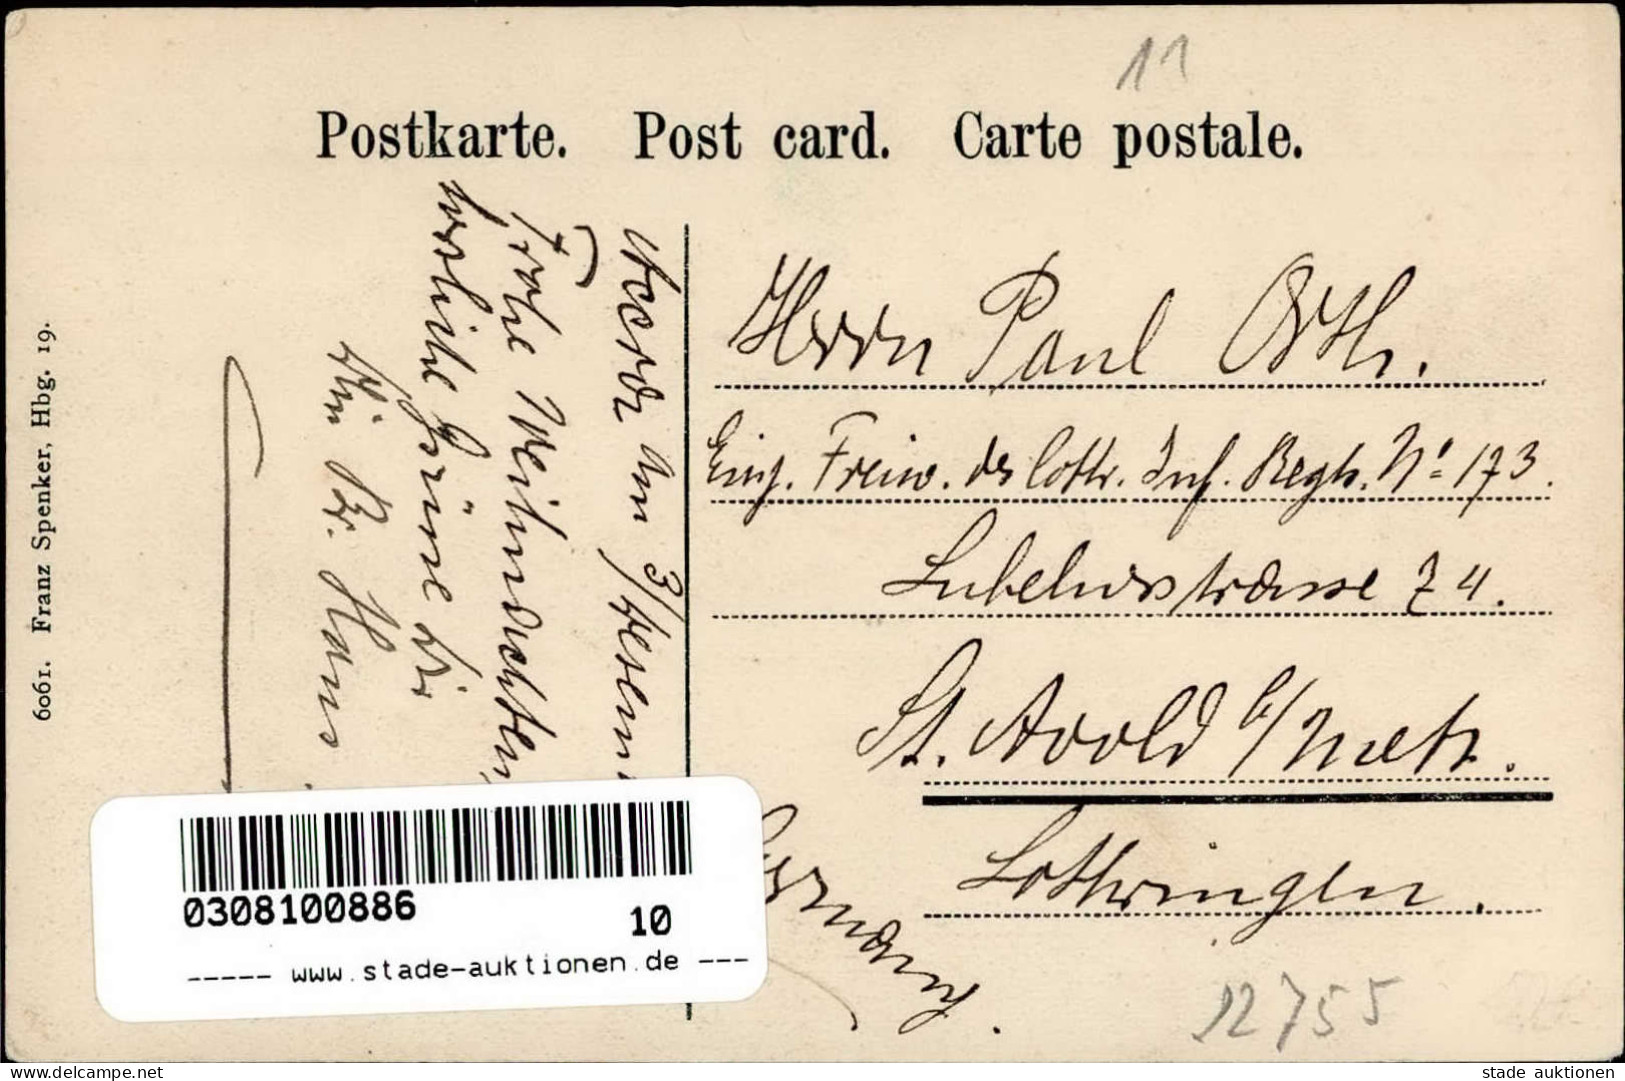 11
Postkarte. Post card. Carte postale.
Herrn Paul Orth.
Einj. Freiw. des Lothr. Inf. Regts. No 173.
Lubelnerstrasse 74.
St. Avold b/Metz.
Lothringen.
Germany.
12755
am 3/
Frohe Weihnachten,
herzliche Grüsse Dir
Dein Br. Hans
6061. Franz Spenker, Hbg. 19.
0308100886
10
----- www.stade-auktionen.de ---
www.delcampe.net
stade auktionen